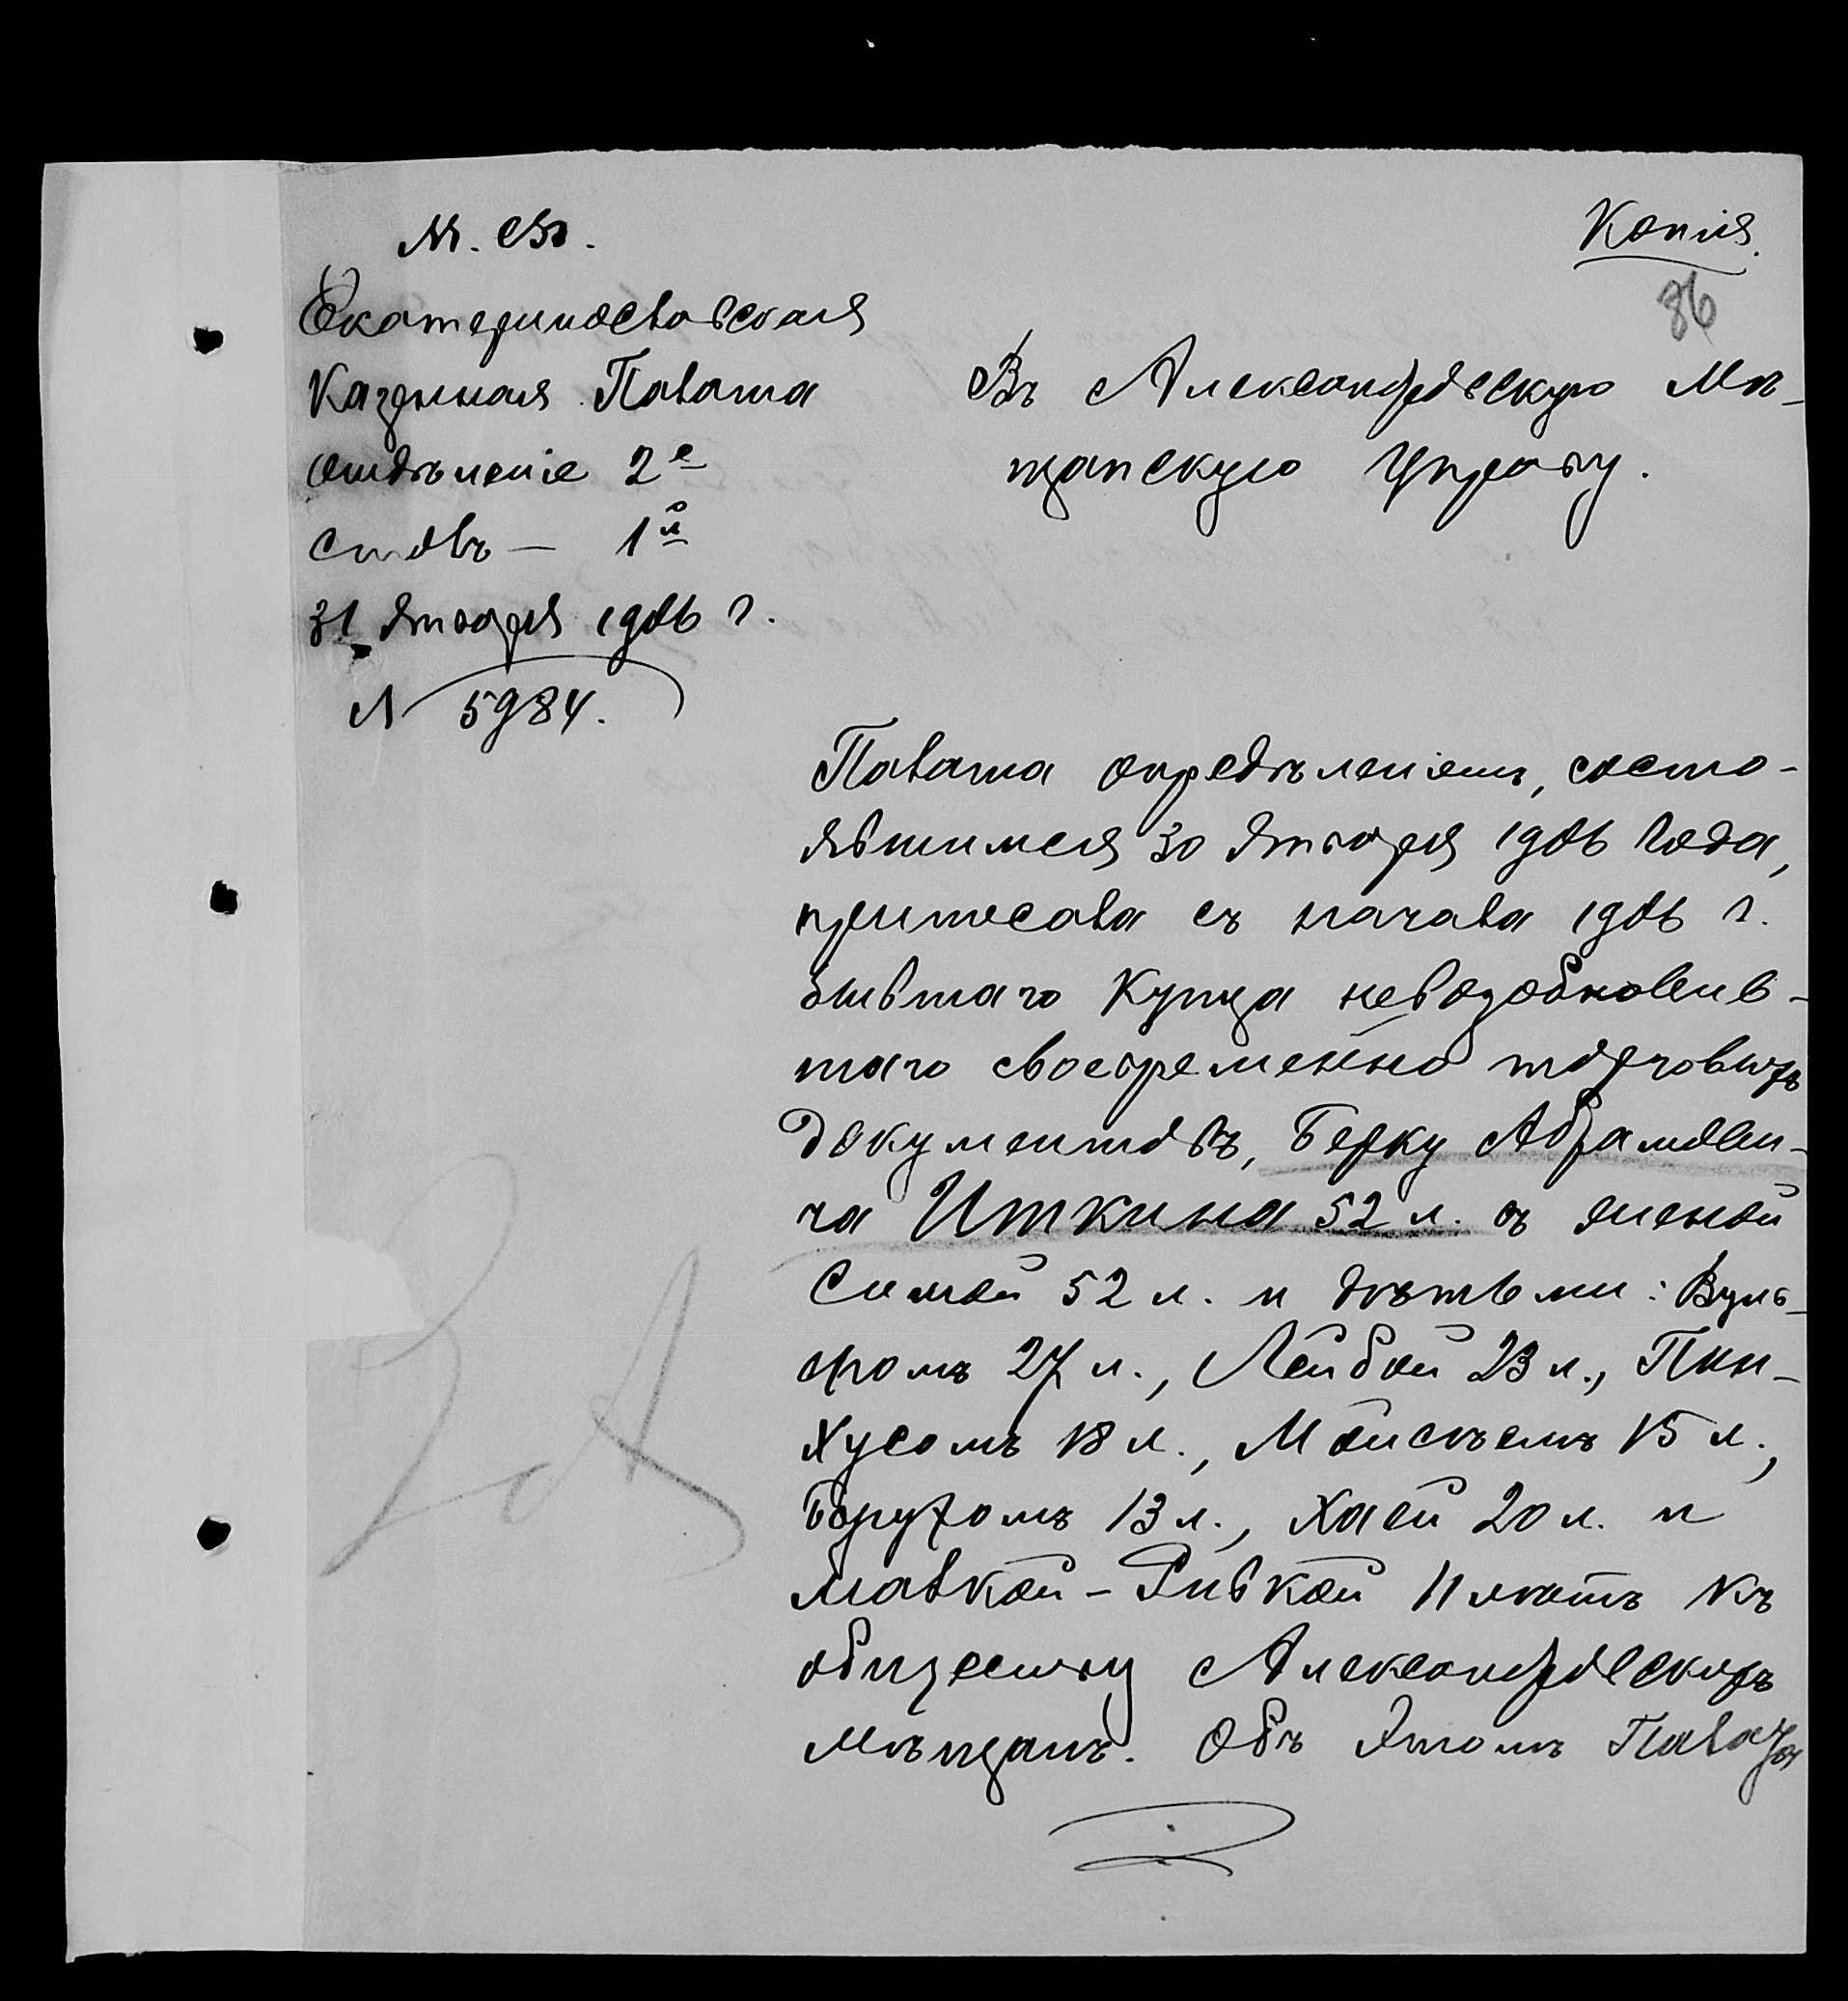 М. Ф.
Копія.
36
Екатеринославская
Казенная Палата
Отдѣленіе 2е
Столъ — 1й
31 Января 1906 г.
№ 5984.
Въ Александровскую Мѣ-
щанскую Управу.
Палата опредѣленіемъ, состо-
явшимся 30 Января 1906 года,
причислила съ начала 1906 г.
бывшаго купца невозобновив-
шаго своевременно торговыхъ
документовъ, Берку Абрамови-
ча Иткина 52 л. съ женой
Симой 52 л. и дѣтьми: Вуль-
фомъ 27 л., Лейбой 23 л., Пин-
хусомъ 18 л., Моисѣемъ 15 л.,
Борухомъ 13 л., Хаей 20 л. и
Малкой-Ривкой 11 лѣтъ къ
обществу Александровскихъ
мѣщанъ. Объ этомъ Палата